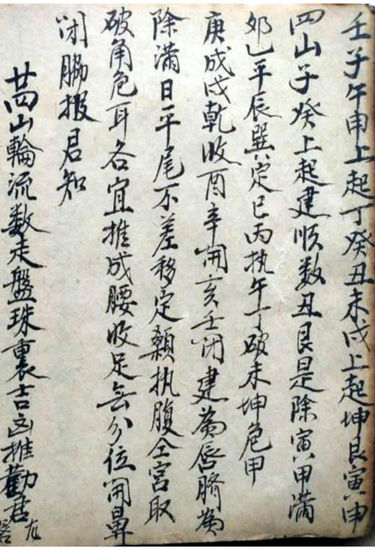 壬子午申上起丁癸丑未戌上起坤艮寅申
四山子癸上起建順数丑艮是除寅甲滿
卯乙平辰巽定巳丙执午丁破未坤危甲
庚成戌乾收酉辛開亥壬闭建為唇臍為
除滿日平尾不差移定額执腹全宮取
破角危耳各宜推成腰收足無分位開鼻
闭脇报君知
廿四山輪流数走盤珠裏吉凶推勸君